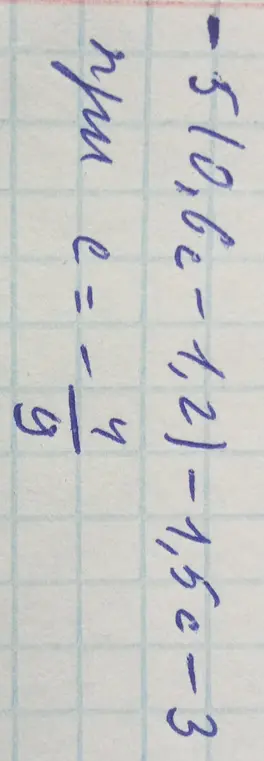 - 5 (0,6c - 1,2) - 1,5c - 3
при c = - 4/9